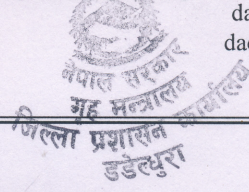 da
dao
नेपाल सरकार
गृह मन्त्रालय
जिल्ला प्रशासन कार्यालय
डडेल्धुरा